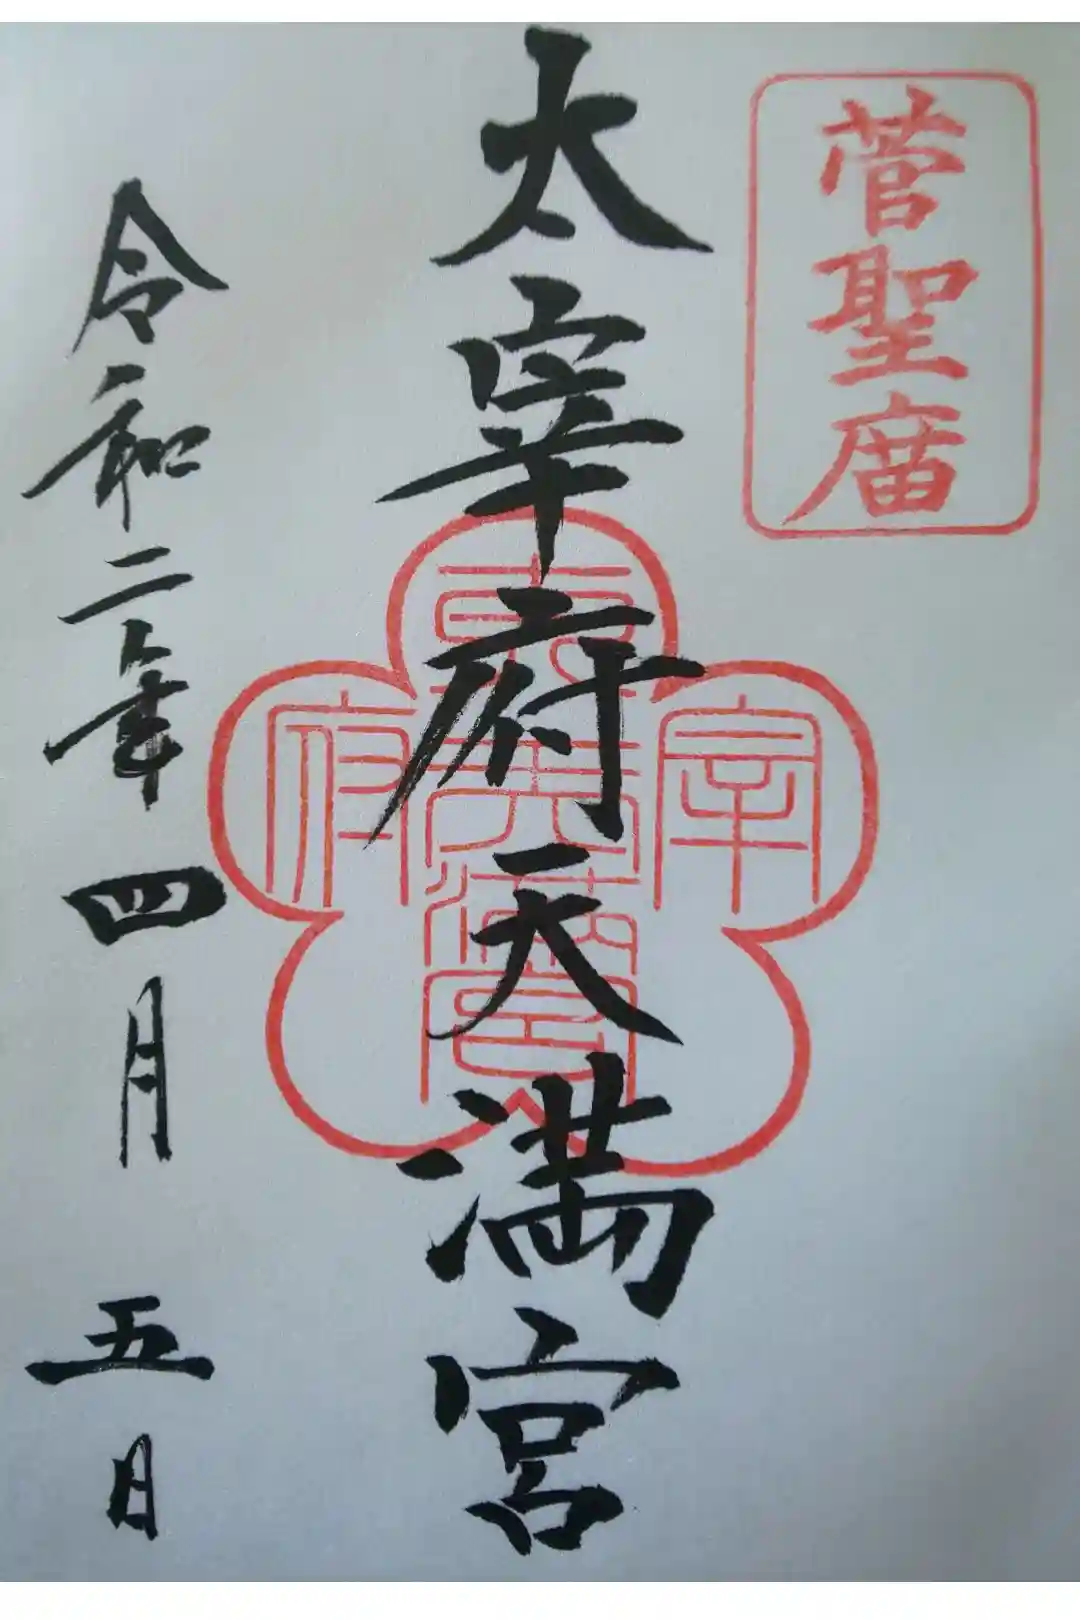 菅聖庿
太宰府天満宮
令和二年四月五日
宰
府
天満宮